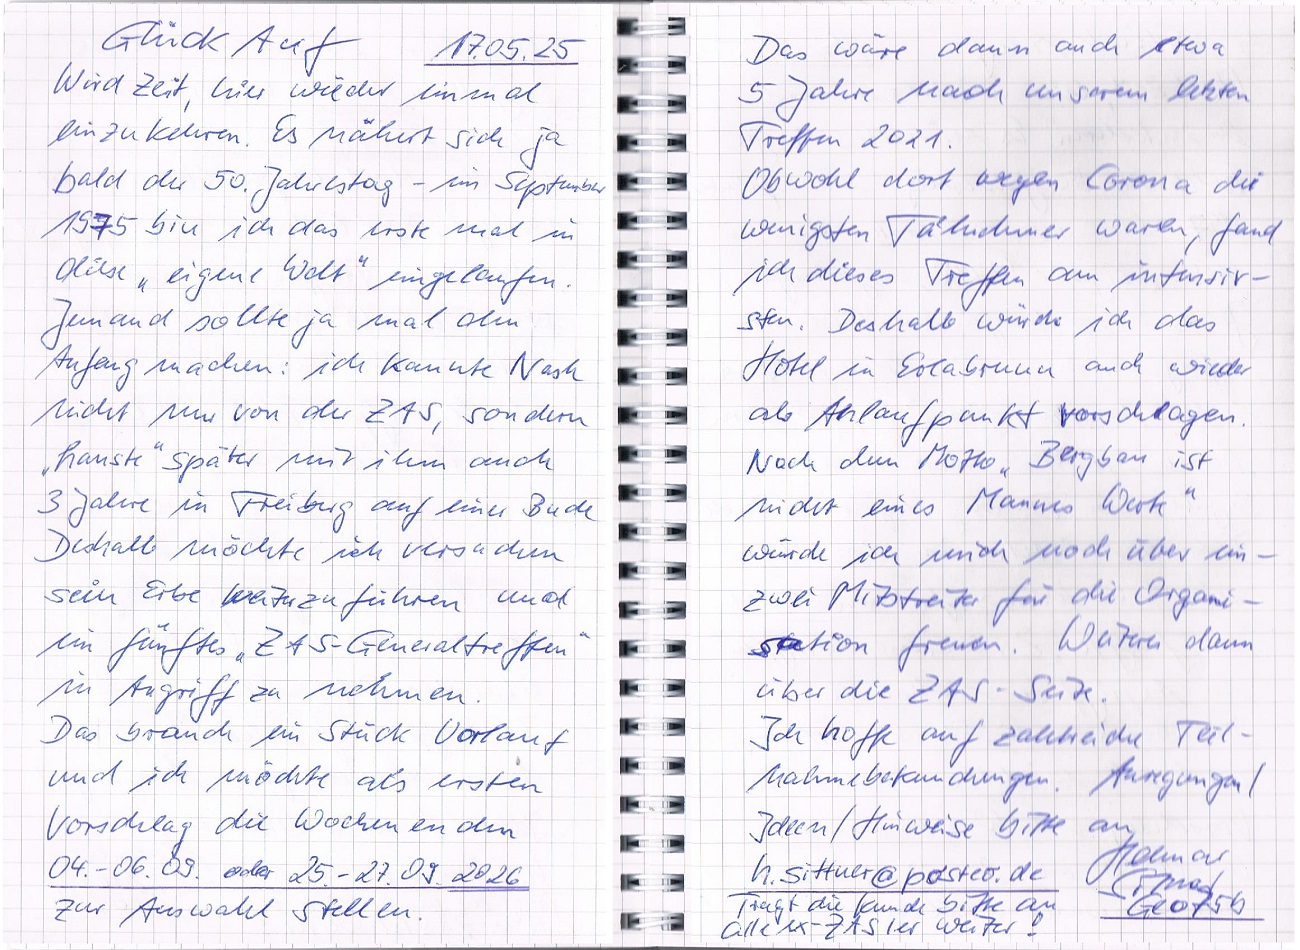 Glück Auf 17.05.25
Wird Zeit, hier wieder einmal
einzukehren. Es nähert sich ja
bald der 50. Jahrestag – im September
1975 bin ich das erste mal in
diese „eigene Welt“ eingelaufen.
Jemand sollte ja mal den
Anfang machen: ich kannte Nash
nicht nur von der ZAS, sondern
„hauste“ später mit ihm auch
3 Jahre in Freiberg auf einer Bude
Deshalb möchte ich versuchen
sein Erbe weiterzuführen und
ein fünftes „ZAS-Generaltreffen“
in Angriff zu nehmen.
Das brauch ein Stück Vorlauf
und ich möchte als ersten
Vorschlag die Wochenenden
04.-06.09. oder 25.-27.09.2026
zur Auswahl stellen.
Das wäre dann auch etwa
5 Jahre nach unserem letzten
Treffen 2021.
Obwohl dort wegen Corona die
wenigsten Teilnehmer waren, fand
ich dieses Treffen am intensiv-
sten. Deshalb würde ich das
Hotel in Erlabrunn auch wieder
als Anlaufpunkt vorschlagen.
Nach dem Motto „Bergbau ist
nicht eines Mannes Werk“
würde ich mich noch über ein-
zwei Mitstreiter für die Organi-
sation freuen. Weiteres dann
über die ZAS-Seite.
Ich hoffe auf zahlreiche Teil-
nahmebekundungen. Anregungen/
Ideen/Hinweise bitte an
h.sittner@posteo.de
Geo75b
Tragt die Kunde bitte an
alle ex-ZAS'ler weiter!